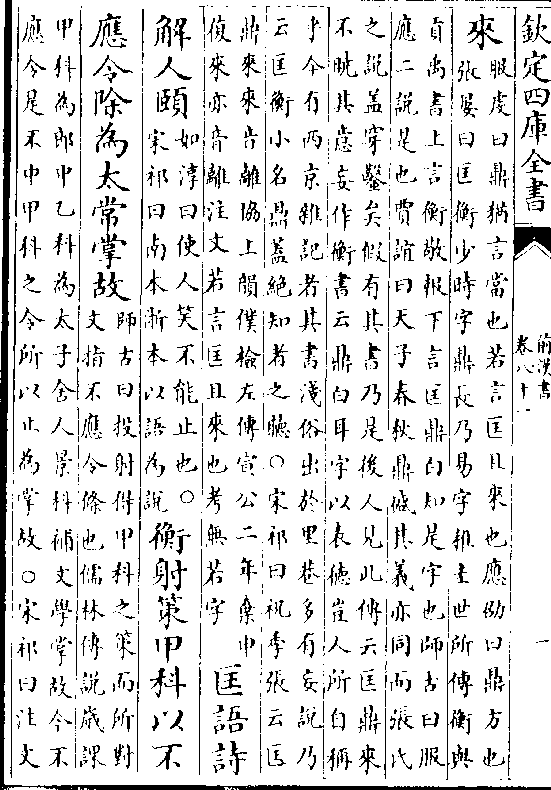 欽定四庫全書
前漢書
卷八十一
一
來服虔曰鼎猶言當也若言匡且來也應劭曰鼎方也
張晏曰匡衡少時字鼎長乃易字稚圭世所傳衡與
貢禹書上言衡敬報下言匡鼎白知是字也師古曰服
應二說是也賈誼曰天子春秋鼎盛其義亦同而張氏
之說蓋穿鑿矣假有其書乃是後人見此傳云匡鼎來
不眺其意妄作衡書云鼎白耳字以表德豈人所自稱
乎今有西京雜記者其書淺俗出於里巷多有妄說乃
云匡衡小名鼎蓋絕知者之聽○宋祁曰祝季張云匡
鼎來來音離協上韻僕檢左傳宣公二年棄甲
復來亦音離注文若言匡且來也考無若字
匡語詩
解人頤如淳曰使人笑不能止也○
宋祁曰南本浙本以語為說
衡射策甲科以不
應令除為太常掌故師古曰投射得甲科之策而所對
文指不應令條也儒林傳說歲課
甲科為郎中乙科為太子舍人景科補文學掌故今不
應令是不中甲科之令所以止為掌故○宋祁曰注文